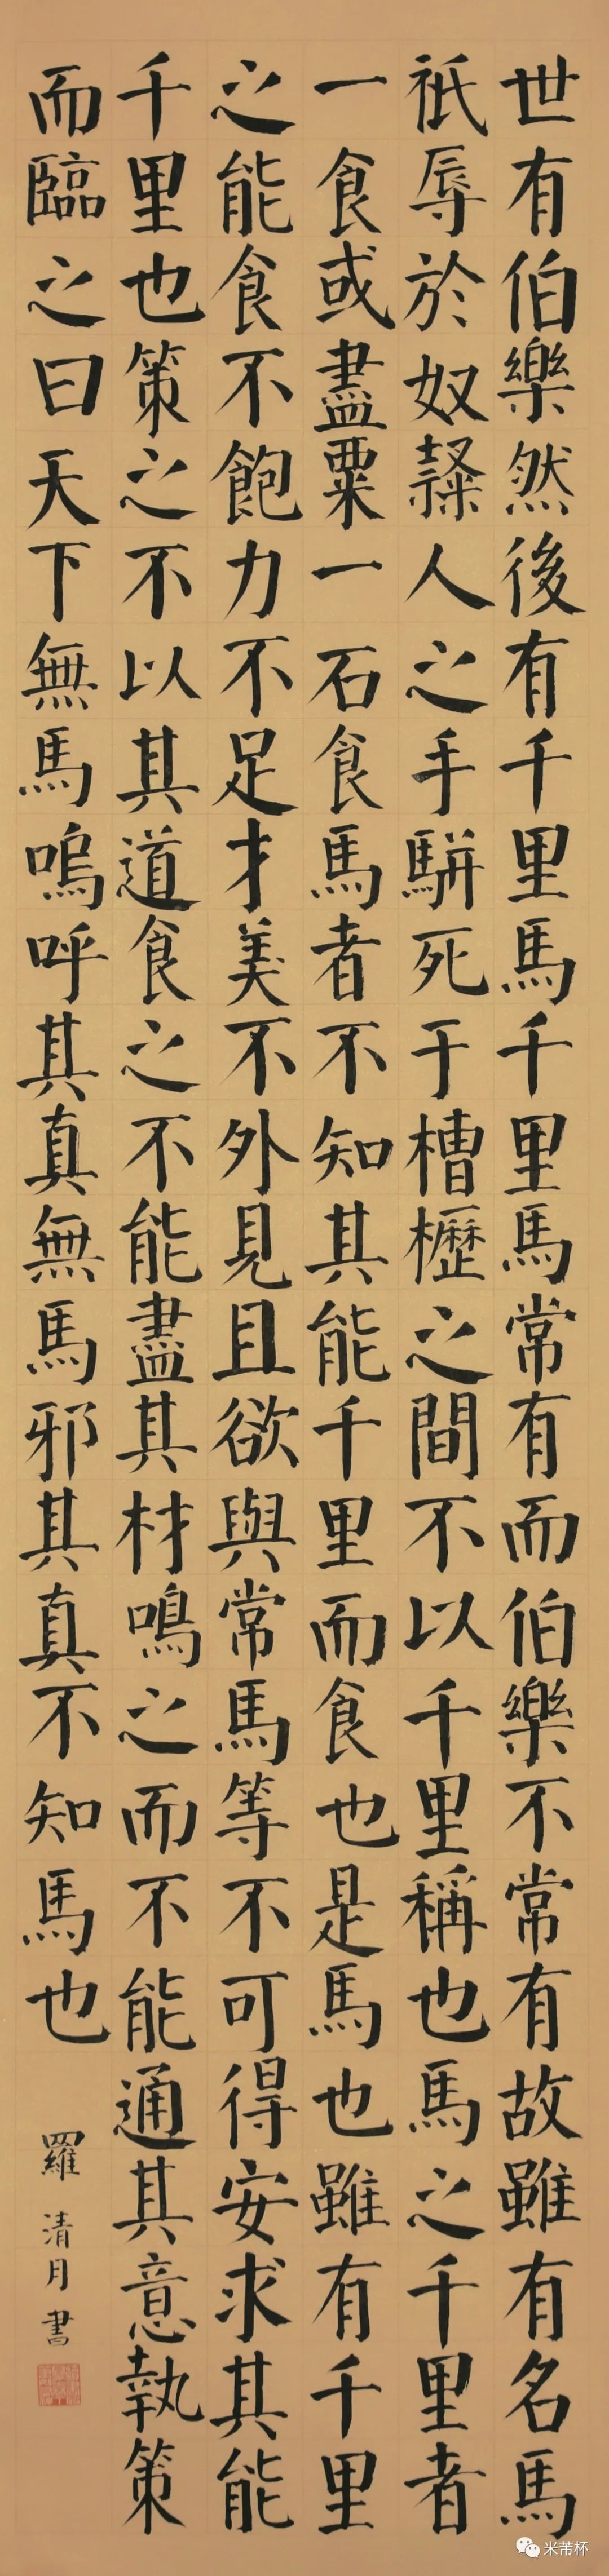 世有伯樂然後有千里馬千里馬常有而伯樂不常有故雖有名馬
祇辱於奴隸人之手駢死于槽櫪之間不以千里稱也馬之千里者
一食或盡粟一石食馬者不知其能千里而食也是馬也雖有千里
之能食不飽力不足才美不外見且欲與常馬等不可得安求其能
千里也策之不以其道食之不能盡其材鳴之而不能通其意執策
而臨之曰天下無馬嗚呼其真無馬邪其真不知馬也
羅清月書
米芾杯